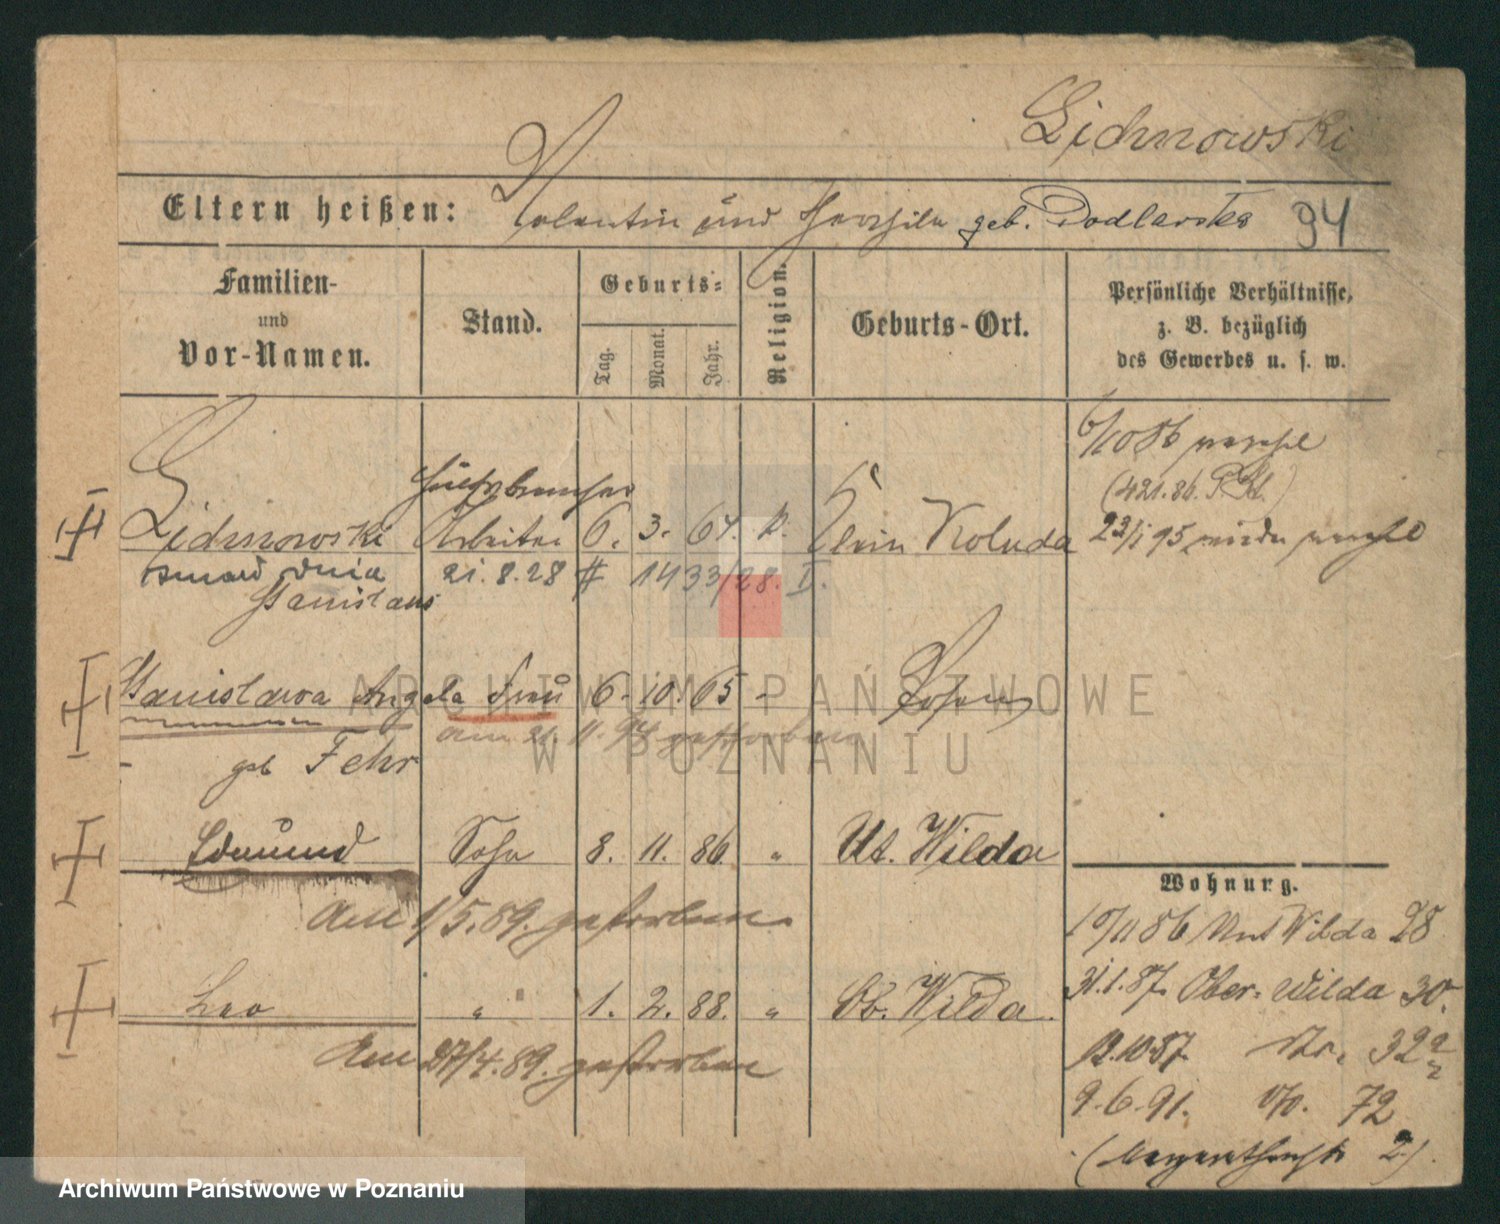 Lidmowski
Eltern heißen: Valentin und geb. Podlarska 94
Familien-
und
Vor-Namen.
Stand.
Geburts-
Tag.
Monat.
Jahr.
Religion.
Geburts-Ort.
Persönliche Verhältnisse,
z. B. bezüglich
des Gewerbes u. s. w.
6/10 86
(421.86.
Lidmowski Arbeiter 6. 3. 64. k. Klein Koluda 23/1 95
zmarł dnia 21.8.28 # 1433/28. I.
Stanislaus
Stanislawa Angela Frau 6. 10. 65 - Posen
am 21. 11. 94 gestorben
geb Fehr
Edmund Sohn 8. 11. 86 " Ut. Wilda
Am 1/5.89. gestorben
Leo " 1. 2. 88. " Ob. Wilda.
Am 27/4.89. gestorben
Wohnung.
10/11 86 Unt Wilda 28
31.1.87. Ober-Wilda 30.
12.10 87 32
9.6.91. 72
2.)
ARCHIWUM PAŃSTWOWE
W POZNANIU
Archiwum Państwowe w Poznaniu